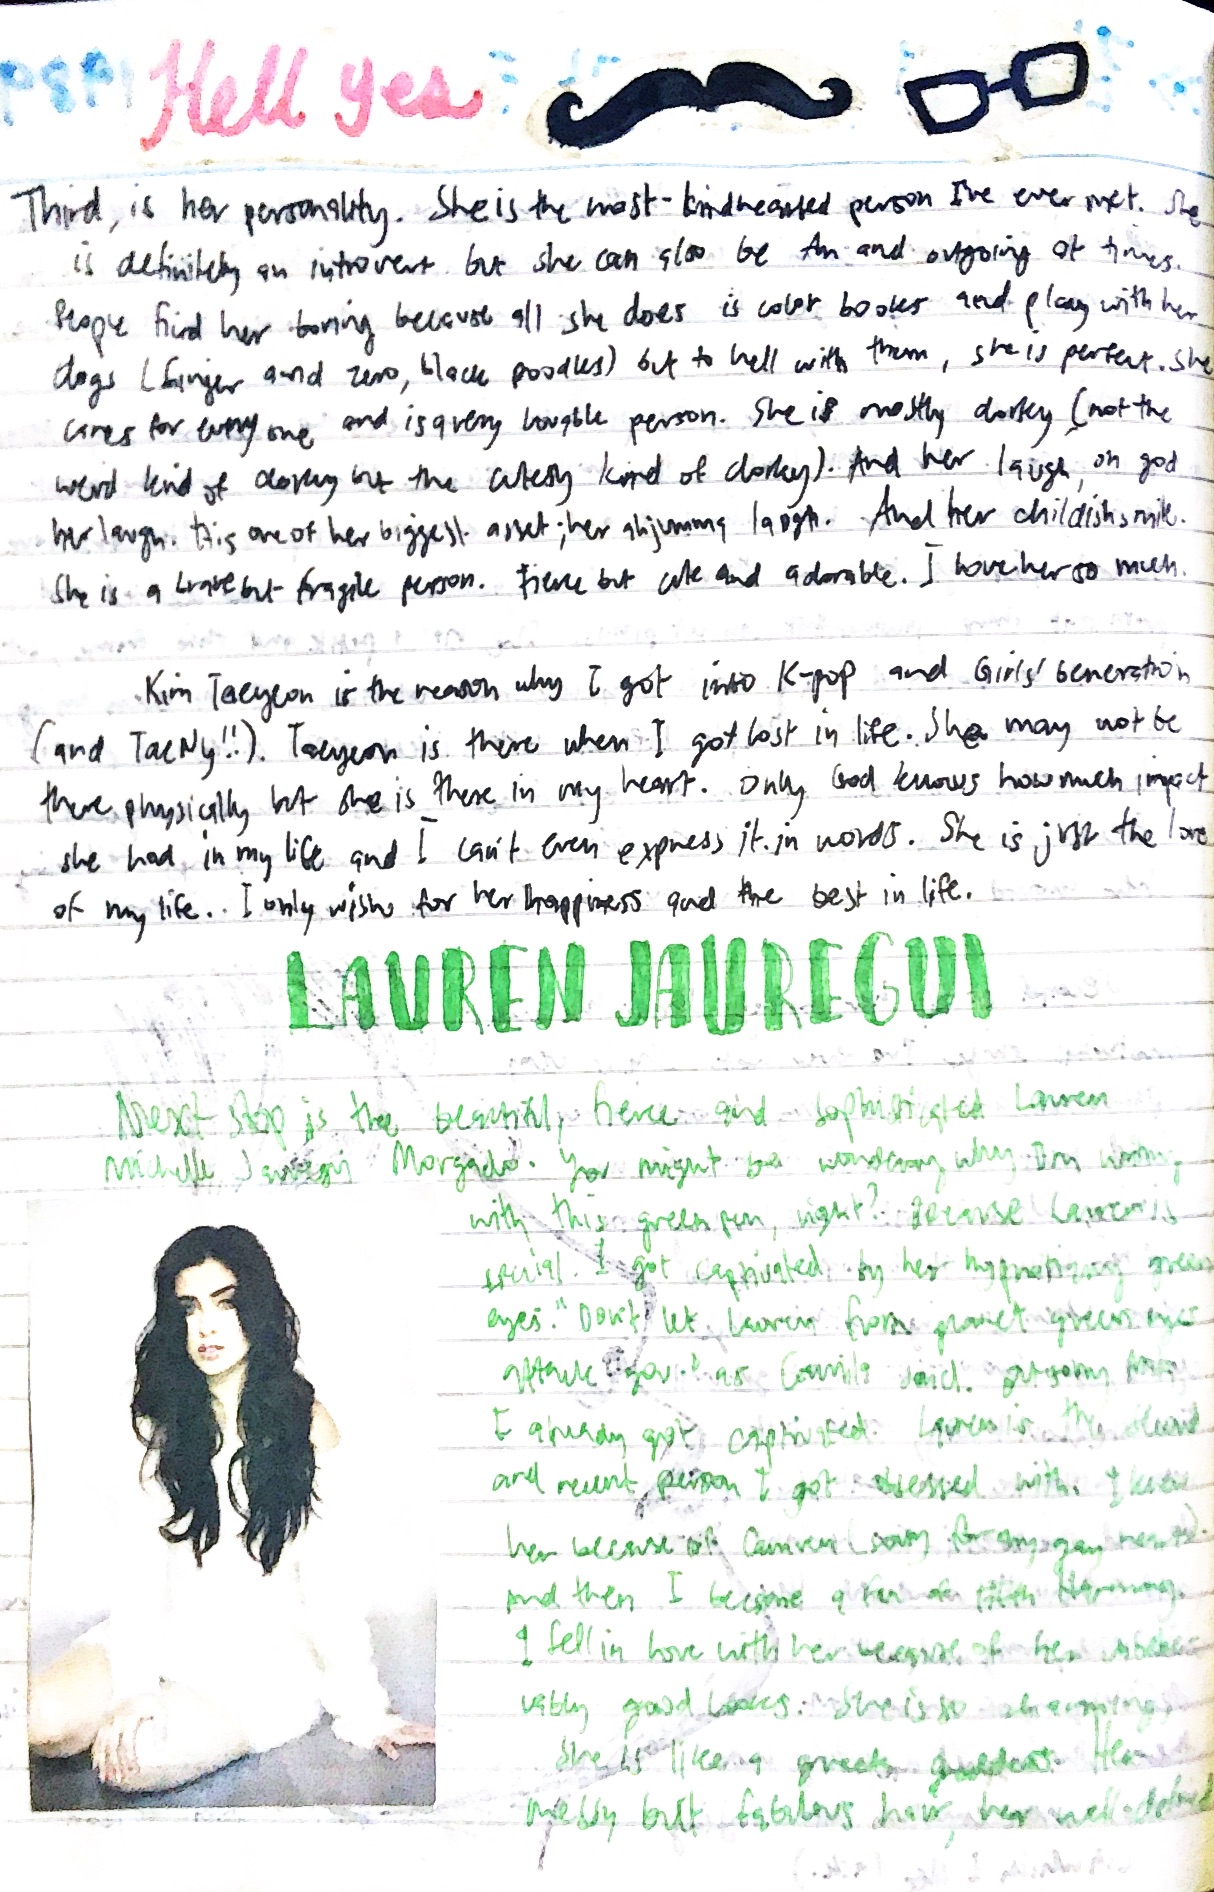 Hell yes
Third, is her personality. She is the most-kindhearted person I've ever met. She
is definitely an introvert but she can also be fun and outgoing at times.
People find her boring because all she does is color books and play with her
dogs (Ginger and Zero, black poodles) but to hell with them, she is perfect. She
cares for everyone and is a very lovable person. She is mostly dorky (not the
weird kind of dorky but the cutesy kind of dorky). And her laugh, oh god
her laugh. It is one of her biggest asset; her ahjumma laugh. And her childish smile.
She is a brave but fragile person. Fierce but cute and adorable. I love her so much.
Kim Taeyeon is the reason why I got into K-pop and Girls' Generation
(and TaeNy!!). Taeyeon is there when I got lost in life. She may not be
there physically but she is there in my heart. Only God knows how much impact
she had in my life and I can't even express it in words. She is just the love
of my life.. I only wish for her happiness and the best in life.
LAUREN JAUREGUI
Next stop is the beautiful, fierce and sophisticated Lauren
Michelle Jauregui Morgado. You might be wondering why I'm writing
with this green pen, right? Because Lauren is
special. I got captivated by her hypnotizing green
eyes. "Don't let Lauren from planet green eyes
attack you." as Camila said.
I already got captivated. Lauren is the
and recent person I got obsessed with. I knew
her because of Camren (sorry for my gay heart).
And then I became a fan of Fifth Harmony.
I fell in love with her because of her unbelie-
vably good looks. She is so charming.
She is like a greek goddess. Her
messy but fabulous hair, her well-defined